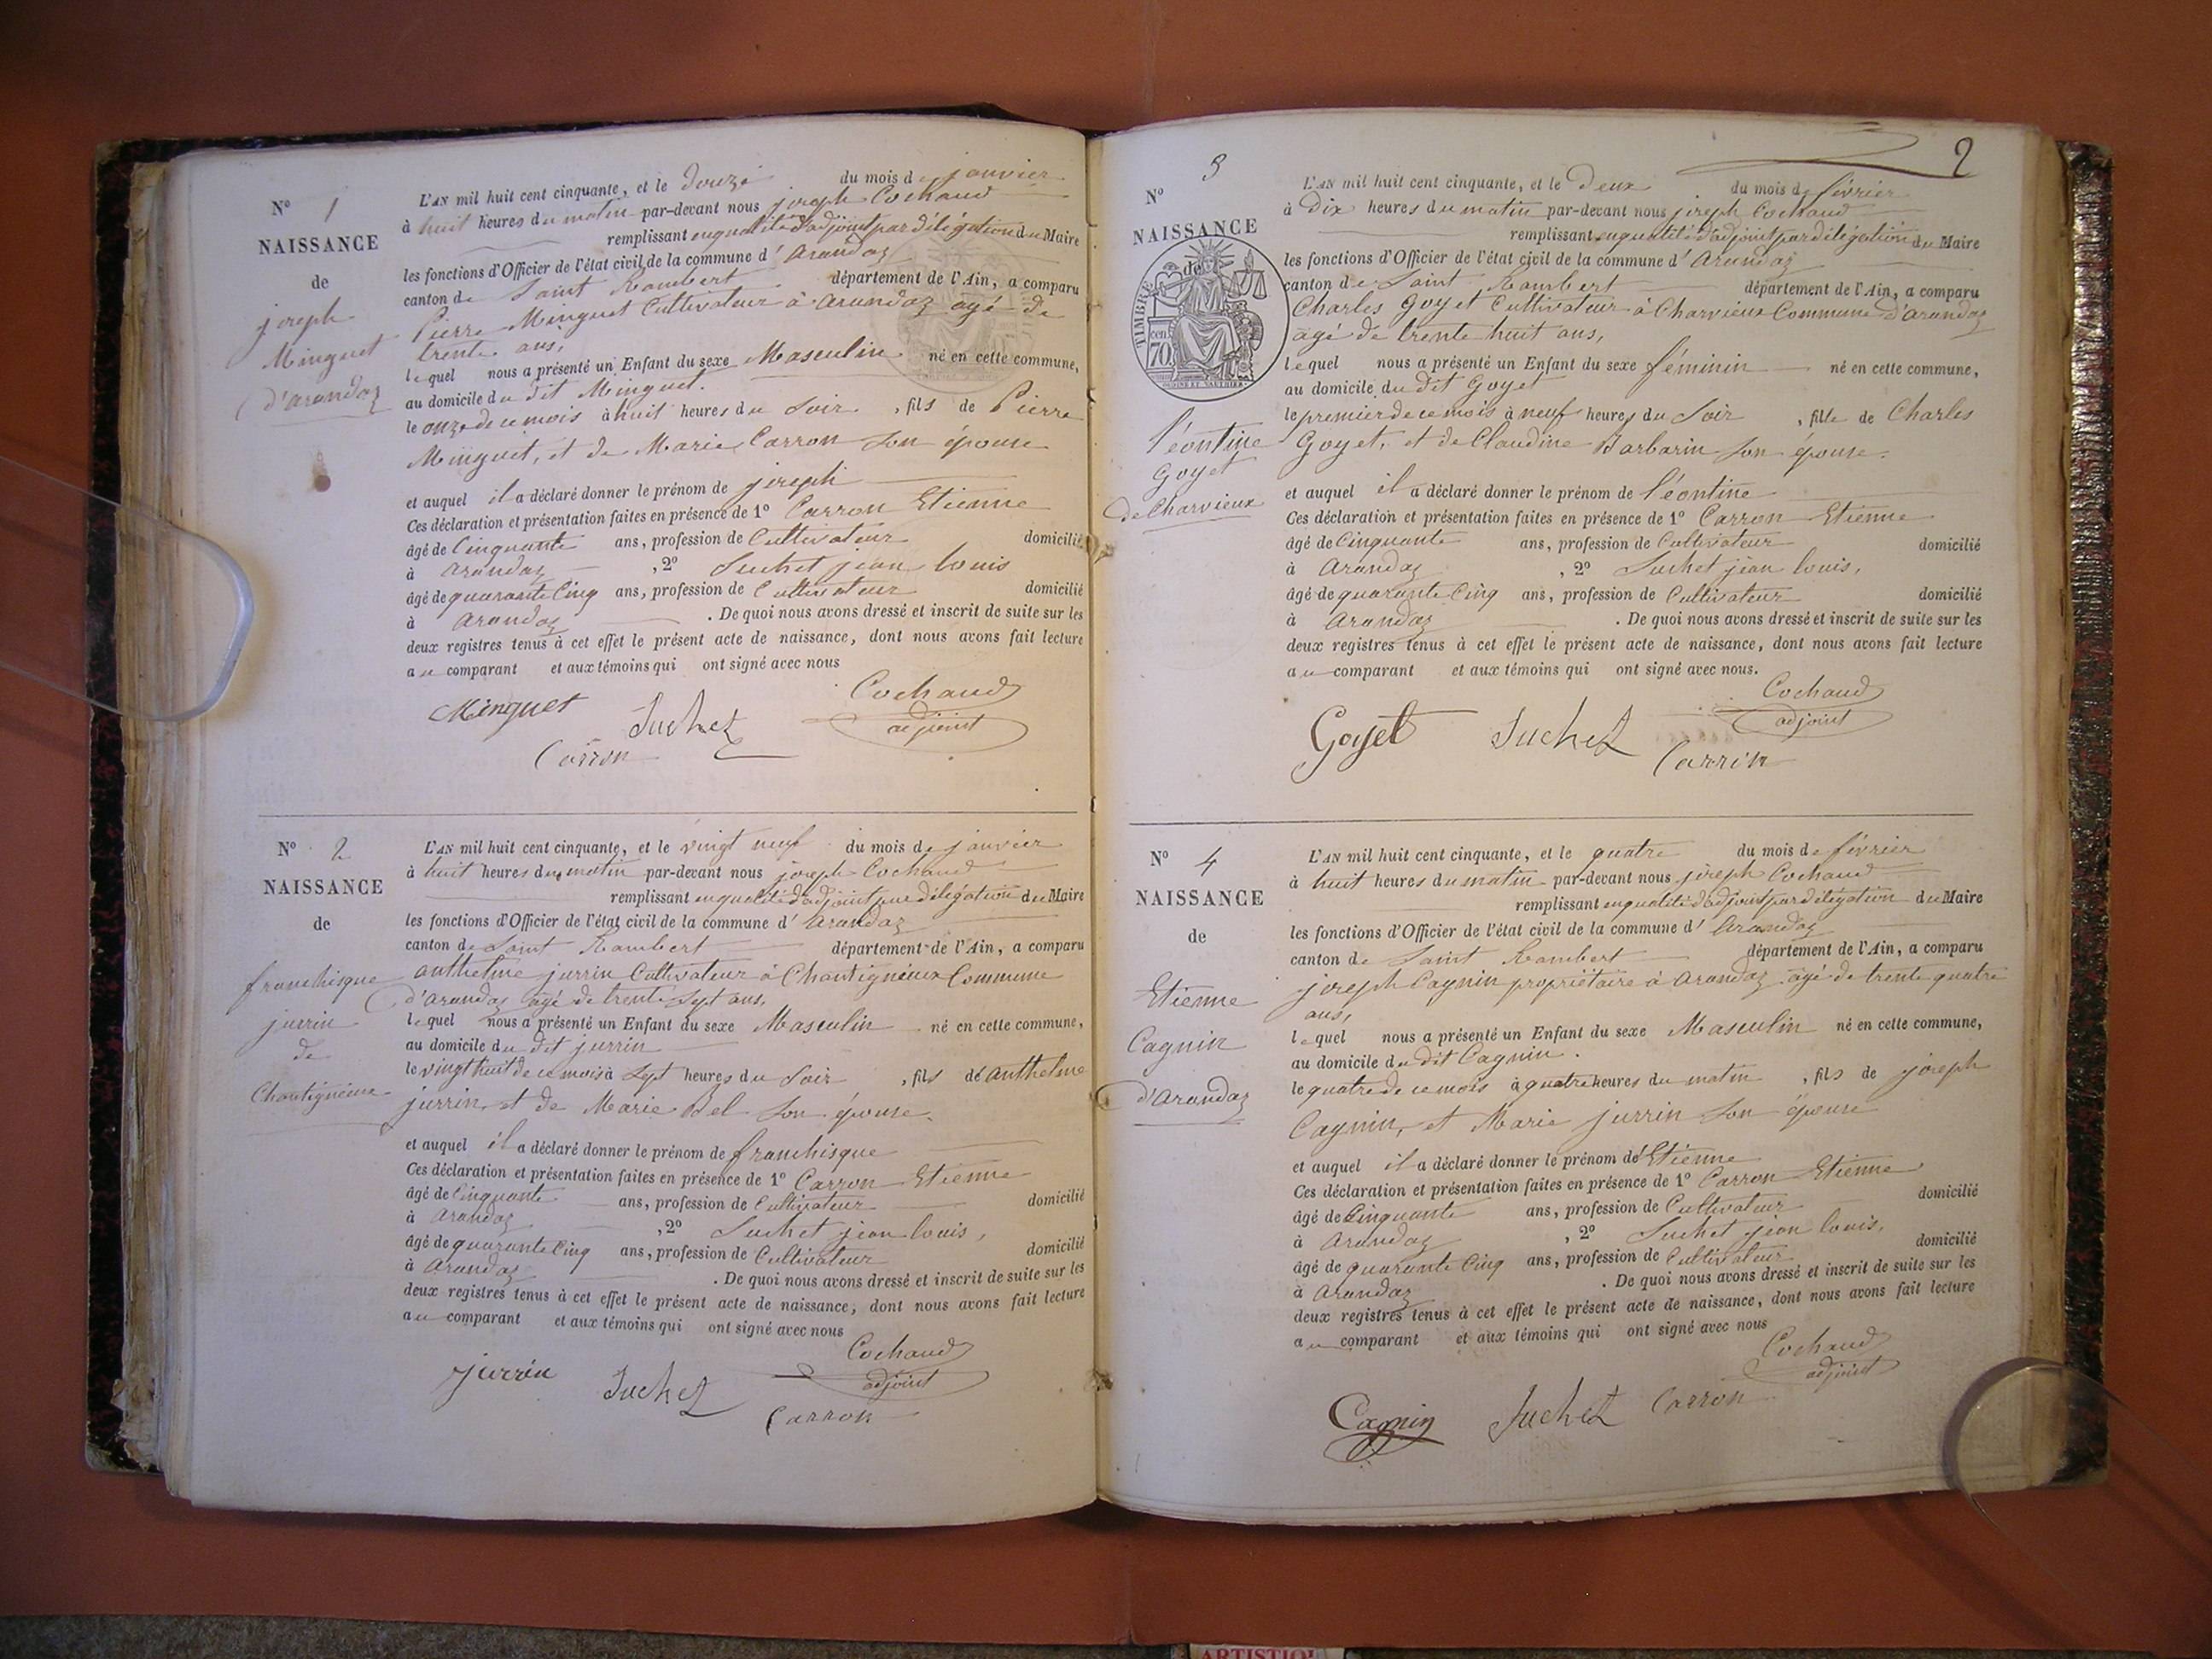 N° 1
NAISSANCE
de
joseph
Minguet
d'arandaz
L'AN mil huit cent cinquante, et le douze du mois de janvier
à huit heures du matin par-devant nous joseph Cochaud
remplissant en qualité d'adjoint par délégation du Maire
les fonctions d'Officier de l'état civil de la commune d'arandaz
canton de Saint Rambert département de l'Ain, a comparu
Pierre Minguet Cultivateur à arandaz agé de
trente ans,
lequel nous a présenté un Enfant du sexe Masculin né en cette commune,
au domicile du dit Minguet.
le onze de ce mois à huit heures du Soir, fils de Pierre
Minguet, et de Marie Carron son épouse
et auquel il a déclaré donner le prénom de joseph
Ces déclaration et présentation faites en présence de 1° Carron Etienne
âgé de Cinquante ans, profession de Cultivateur domicilié
à arandaz, 2° Suchet jean louis
âgé de quarante Cinq ans, profession de Cultivateur domicilié
à arandaz. De quoi nous avons dressé et inscrit de suite sur les
deux registres tenus à cet effet le présent acte de naissance, dont nous avons fait lecture
au comparant et aux témoins qui ont signé avec nous
Cochaud
Minguet Suchet adjoint
Carron
N° 2
NAISSANCE
de
franchisque
jurrin
de
Chantignieux
L'AN mil huit cent cinquante, et le vingt neuf du mois de janvier
à huit heures du matin par-devant nous joseph Cochaud
remplissant en qualité d'adjoint par délégation du Maire
les fonctions d'Officier de l'état civil de la commune d'arandaz
canton de Saint Rambert département de l'Ain, a comparu
anthelme jurrin Cultivateur à Chantignieux Commune
d'arandaz agé de trente Sept ans,
lequel nous a présenté un Enfant du sexe Masculin né en cette commune,
au domicile du dit jurrin
le vingt huit de ce mois à Sept heures du Soir, fils de anthelme
jurrin, et de Marie Bel son épouse.
et auquel il a déclaré donner le prénom de franchisque
Ces déclaration et présentation faites en présence de 1° Carron Etienne
âgé de Cinquante ans, profession de Cultivateur domicilié
à arandaz, 2° Suchet jean louis,
âgé de quarante Cinq ans, profession de Cultivateur domicilié
à arandaz. De quoi nous avons dressé et inscrit de suite sur les
deux registres tenus à cet effet le présent acte de naissance, dont nous avons fait lecture
au comparant et aux témoins qui ont signé avec nous
Cochaud
jurrin Suchet adjoint
Carron
2
N° 3
NAISSANCE
de
TIMBRE
70 cen
léontine
Goyet
de Charvieux
L'AN mil huit cent cinquante, et le Deux du mois de février
à Dix heures du matin par-devant nous joseph Cochaud
remplissant en qualité d'adjoint par délégation du Maire
les fonctions d'Officier de l'état civil de la commune d'arandaz
canton de Saint Rambert département de l'Ain, a comparu
Charles Goyet Cultivateur à Charvieux Commune d'arandaz
agé de trente huit ans,
lequel nous a présenté un Enfant du sexe féminin né en cette commune,
au domicile du dit Goyet
le premier de ce mois à neuf heures du Soir, fille de Charles
Goyet, et de Claudine Barbarin son épouse.
et auquel il a déclaré donner le prénom de léontine
Ces déclaration et présentation faites en présence de 1° Carron Etienne
âgé de Cinquante ans, profession de Cultivateur domicilié
à arandaz, 2° Suchet jean louis,
âgé de quarante Cinq ans, profession de Cultivateur domicilié
à arandaz. De quoi nous avons dressé et inscrit de suite sur les
deux registres tenus à cet effet le présent acte de naissance, dont nous avons fait lecture
au comparant et aux témoins qui ont signé avec nous.
Cochaud
Goyet Suchet adjoint
Carron
N° 4
NAISSANCE
de
Etienne
Cagnin
d'arandaz
L'AN mil huit cent cinquante, et le quatre du mois de février
à huit heures du matin par-devant nous joseph Cochaud
remplissant en qualité d'adjoint par délégation du Maire
les fonctions d'Officier de l'état civil de la commune d'arandaz
canton de Saint Rambert département de l'Ain, a comparu
joseph Cagnin propriétaire à arandaz agé de trente quatre
ans,
lequel nous a présenté un Enfant du sexe Masculin né en cette commune,
au domicile du dit Cagnin.
le quatre de ce mois à quatre heures du matin, fils de joseph
Cagnin, et Marie jurrin son épouse
et auquel il a déclaré donner le prénom de Etienne
Ces déclaration et présentation faites en présence de 1° Carron Etienne
âgé de Cinquante ans, profession de Cultivateur domicilié
à arandaz, 2° Suchet jean louis,
âgé de quarante Cinq ans, profession de Cultivateur domicilié
à arandaz. De quoi nous avons dressé et inscrit de suite sur les
deux registres tenus à cet effet le présent acte de naissance, dont nous avons fait lecture
au comparant et aux témoins qui ont signé avec nous
Cochaud
adjoint
Cagnin Suchet Carron